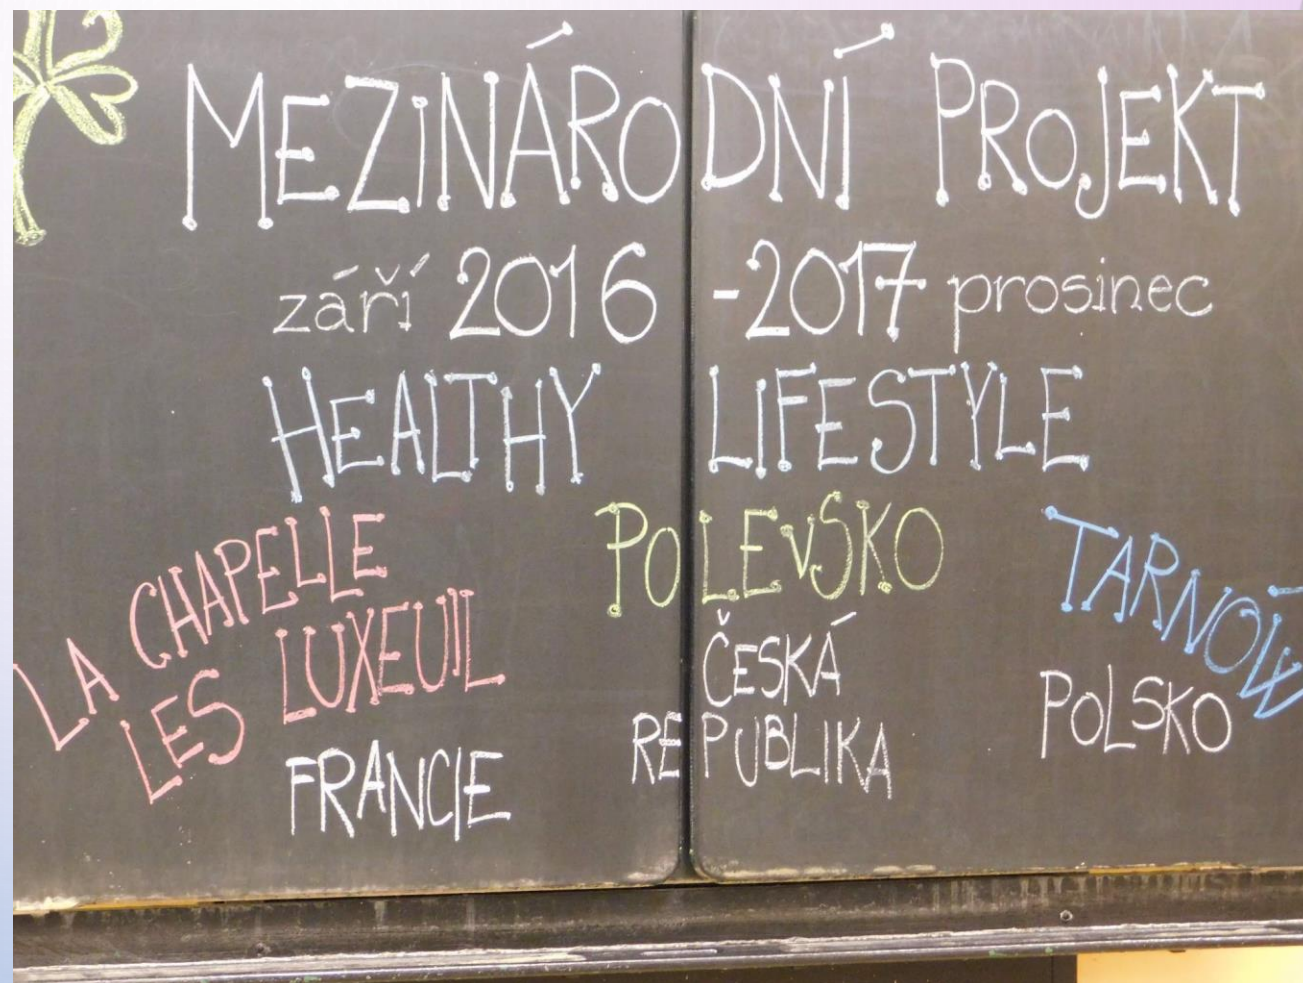 MEZINÁRODNÍ PROJEKT
září 2016 - 2017 prosinec
HEALTHY LIFESTYLE
LA CHAPELLE
LES LUXEUIL
FRANCIE
POLEVSKO
ČESKÁ
REPUBLIKA
TARNÓW
POLSKO